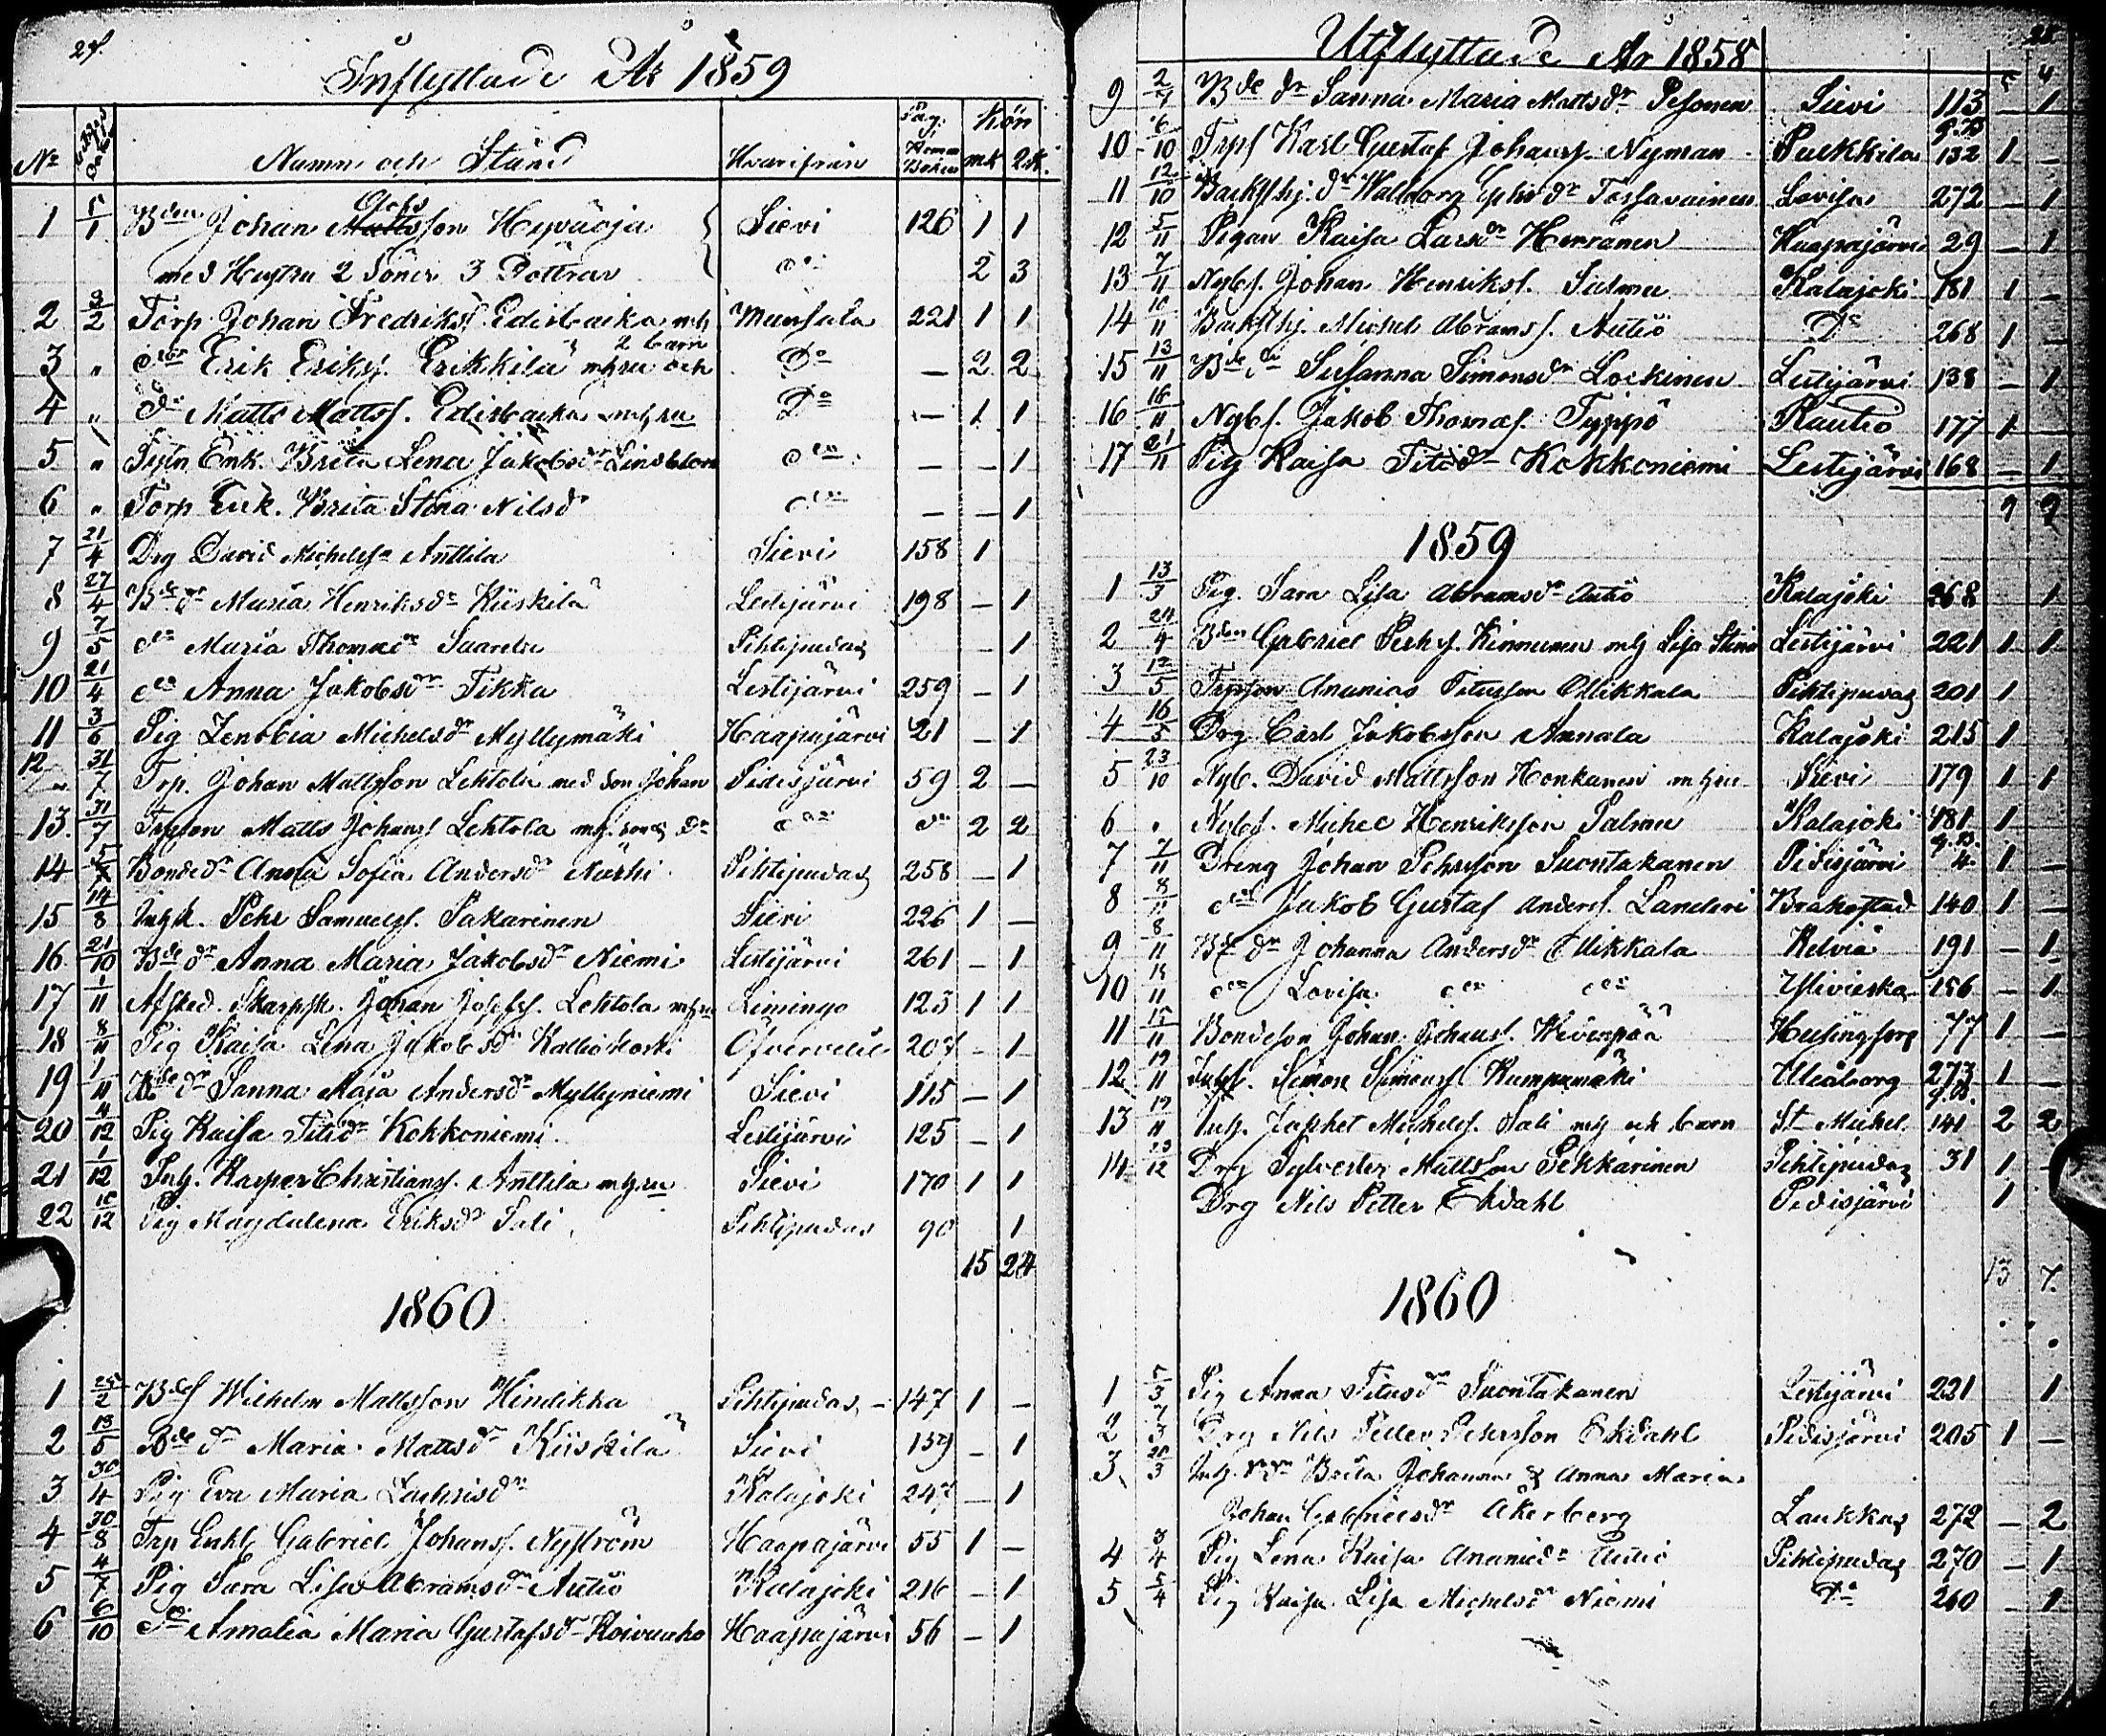 24.
Inflyttade År 1859
No
Namn och Stånd Hvarifrån Pag. i Komm Boken Kön mk qk.
1 5/1 Bden Johan Mattsson Hyväoja Sievi 126 1 1
med Hustru 2 Söner 3 Döttrar do 2 3
2 3/2 Torp Johan Fredriksf. Edisbacka mh Munsala 221 1 1
2 barn
3 " do Erik Eriksf. Erkkilä mhru och Do — 2 2
4 " do Matts Mattsf. Edisbacka mhru Do — 1 1
5 " Enk. Brita Lena Jakobsdr Lindblom do — — 1
6 " Torp Enk. Brita Stina Nilsdr do — — 1
7 21/4 Drg David Michelss Anttila Sievi 158 1
8 27/4 Bde dr Maria Henriksdr Kiiskilä Lestijärvi 198 — 1
9 7/5 do Maria Thomasdr Saarela Pihtipudas 1
10 21/4 do Anna Jakobsdr Tikka Lestijärvi 259 — 1
11 3/6 Pig Zenobia Michelsdr Myllymäki Haapajärvi 21 — 1
12 31/7 Trp. Johan Mattsson Lehtola med Son Johan Pidisjärvi 59 2 —
13. 31/7 Matts Johansf Lehtola do do 2 2
14 5/7 Bonde dr Anna Sofia Andersdr Pihtipudas 258 — 1
15 14/8 Pehr Samuelsf. Pakarinen Sievi 226 1 —
16 21/10 Bde dr Anna Maria Jakobsdr Niemi Lestijärvi 261 — 1
17 1/11 Afsked. Skarpsk. Johan Josefsf. Lehtola mhru Limingo 123 1 1
18 8/11 Pig Kaisa Lena Jakobsdr Kalliokoski Öfvervetil 207 — 1
19 1/11 Bde dr Sanna Maja Andersdr Myllyniemi Sievi 115 — 1
20 4/12 Pig Kaisa Titidr Kokkoniemi. Lestijärvi 125 — 1
21 1/12 Inh. Kasper Christiansf. Anttila mhru Sievi 170 1 1
22 10/12 Pig Magdalena Eriksdr Sali Pihtipudas 90 1
15 24
1860
1 25/2 Bdes Wilhelm Mattsson Hindikka Pihtipudas — 147 1 —
2 13/5 Bde dr Maria Mattsdr Kiiskilä Sievi 159 — 1
3 30/4 Pig Eva Maria Zachrisdr Kalajoki 247 — 1
4 30/8 Trp Enkl Gabriel Johansf. Nyström Haapajärvi 55 1 —
5 4/7 Pig Sara Lisa Abramsdr Autio Kalajoki 216 — 1
6 6/10 do Amalia Maria Gustafsdr Koivuaho Haapajärvi 56 — 1
25
Utflyttade År 1858
5 4
9 2/9 Bde dr Sanna Maria Mattsdr Pesonen Sievi 113 — 1
g.B.
10 6/10 Trpf Karl Gustaf Johansf. Nyman Pulkkila 132 1 —
11 12/10 Backsthj. dr Walborg Tossavainen Lovisa 272 — 1
12 5/11 Pigan Kaisa Larsdr Herranen Haapajärvi 29 — 1
13 7/11 Nybf. Johan Henriksf. Salmu Kalajoki 181 1 —
14 10/11 Backsthj. Michel Abramsf. Autiö Do 268 1 —
15 13/11 Bde dr Susanna Simonsdr Lockinen Lestijärvi 138 — 1
16 16/11 Nybf. Jakob Thomasf. Typpö Rautio 177 1
17 21/11 Pig Kaisa Titidr Kokkoniemi Lestijärvi 168 — 1
9 9
1859
1 13/3 Pig. Sara Lisa Abramsdr Autiö Kalajoki 268 1
2 24/4 Bden Gabriel Pehrsf. Kinnunen mh Lisa Stina Lestijärvi 221 1 1
3 12/5 Ananias Titusson Ollikkala Pihtipudas 201 1
4 16/5 Drg Carl Jakobsson Annala Kalajoki 215 1
5 23/10 Nyb. David Mattsson Honkanen mhru Sievi 179 1 1
6 " Nybf. Michel Henriksson Salmu Kalajoki 181 1
g.B.
7 7/11 Dreng Johan Pehrsson Suontakanen Pidisjärvi 4. 1 —
8 8/11 do Jakob Gustaf Andersf. Landeri Brahestad 140 1 —
9 8/11 Bde dr Johanna Andersdr Ollikkala Kelviå 191 — 1
10 18/11 do Lovisa do do Ylivieska 156 — 1
11 15/11 Bondeson Johan Johansf. Hevonpää Helsingfors 77 1 —
12 19/11 Inhf. Simon Simonsf. Kumpumäki Uleåborg 273 1 —
g.B.
13 19/11 Inh. Japhet Michelsf. Sali mh och barn St Michel. 141 2 2
14 23/12 Drg Sylvester Mattsson Pekkarinen Pihtipudas 31 1 —
Drg Nils Petter Ekdahl Pidisjärvi 1
13 7.
1860
1 5/3 Pig Anna Titusdr Suontakanen Lestijärvi 221 1
2 7/3 Drg Nils Petter Pehrsson Ekdahl Pidisjärvi 205 1 —
3 20/3 Inh. Brita Johanna & Anna Maria
Johan Gabrielsdr Åkerberg Laukkas 272 — 2
4 3/4 Pig Lena Kaisa Ananiedr Autio Pihtipudas 270 — 1
5 5/4 Pig Kaisa Lisa Michelsdr Niemi Do 260 — 1